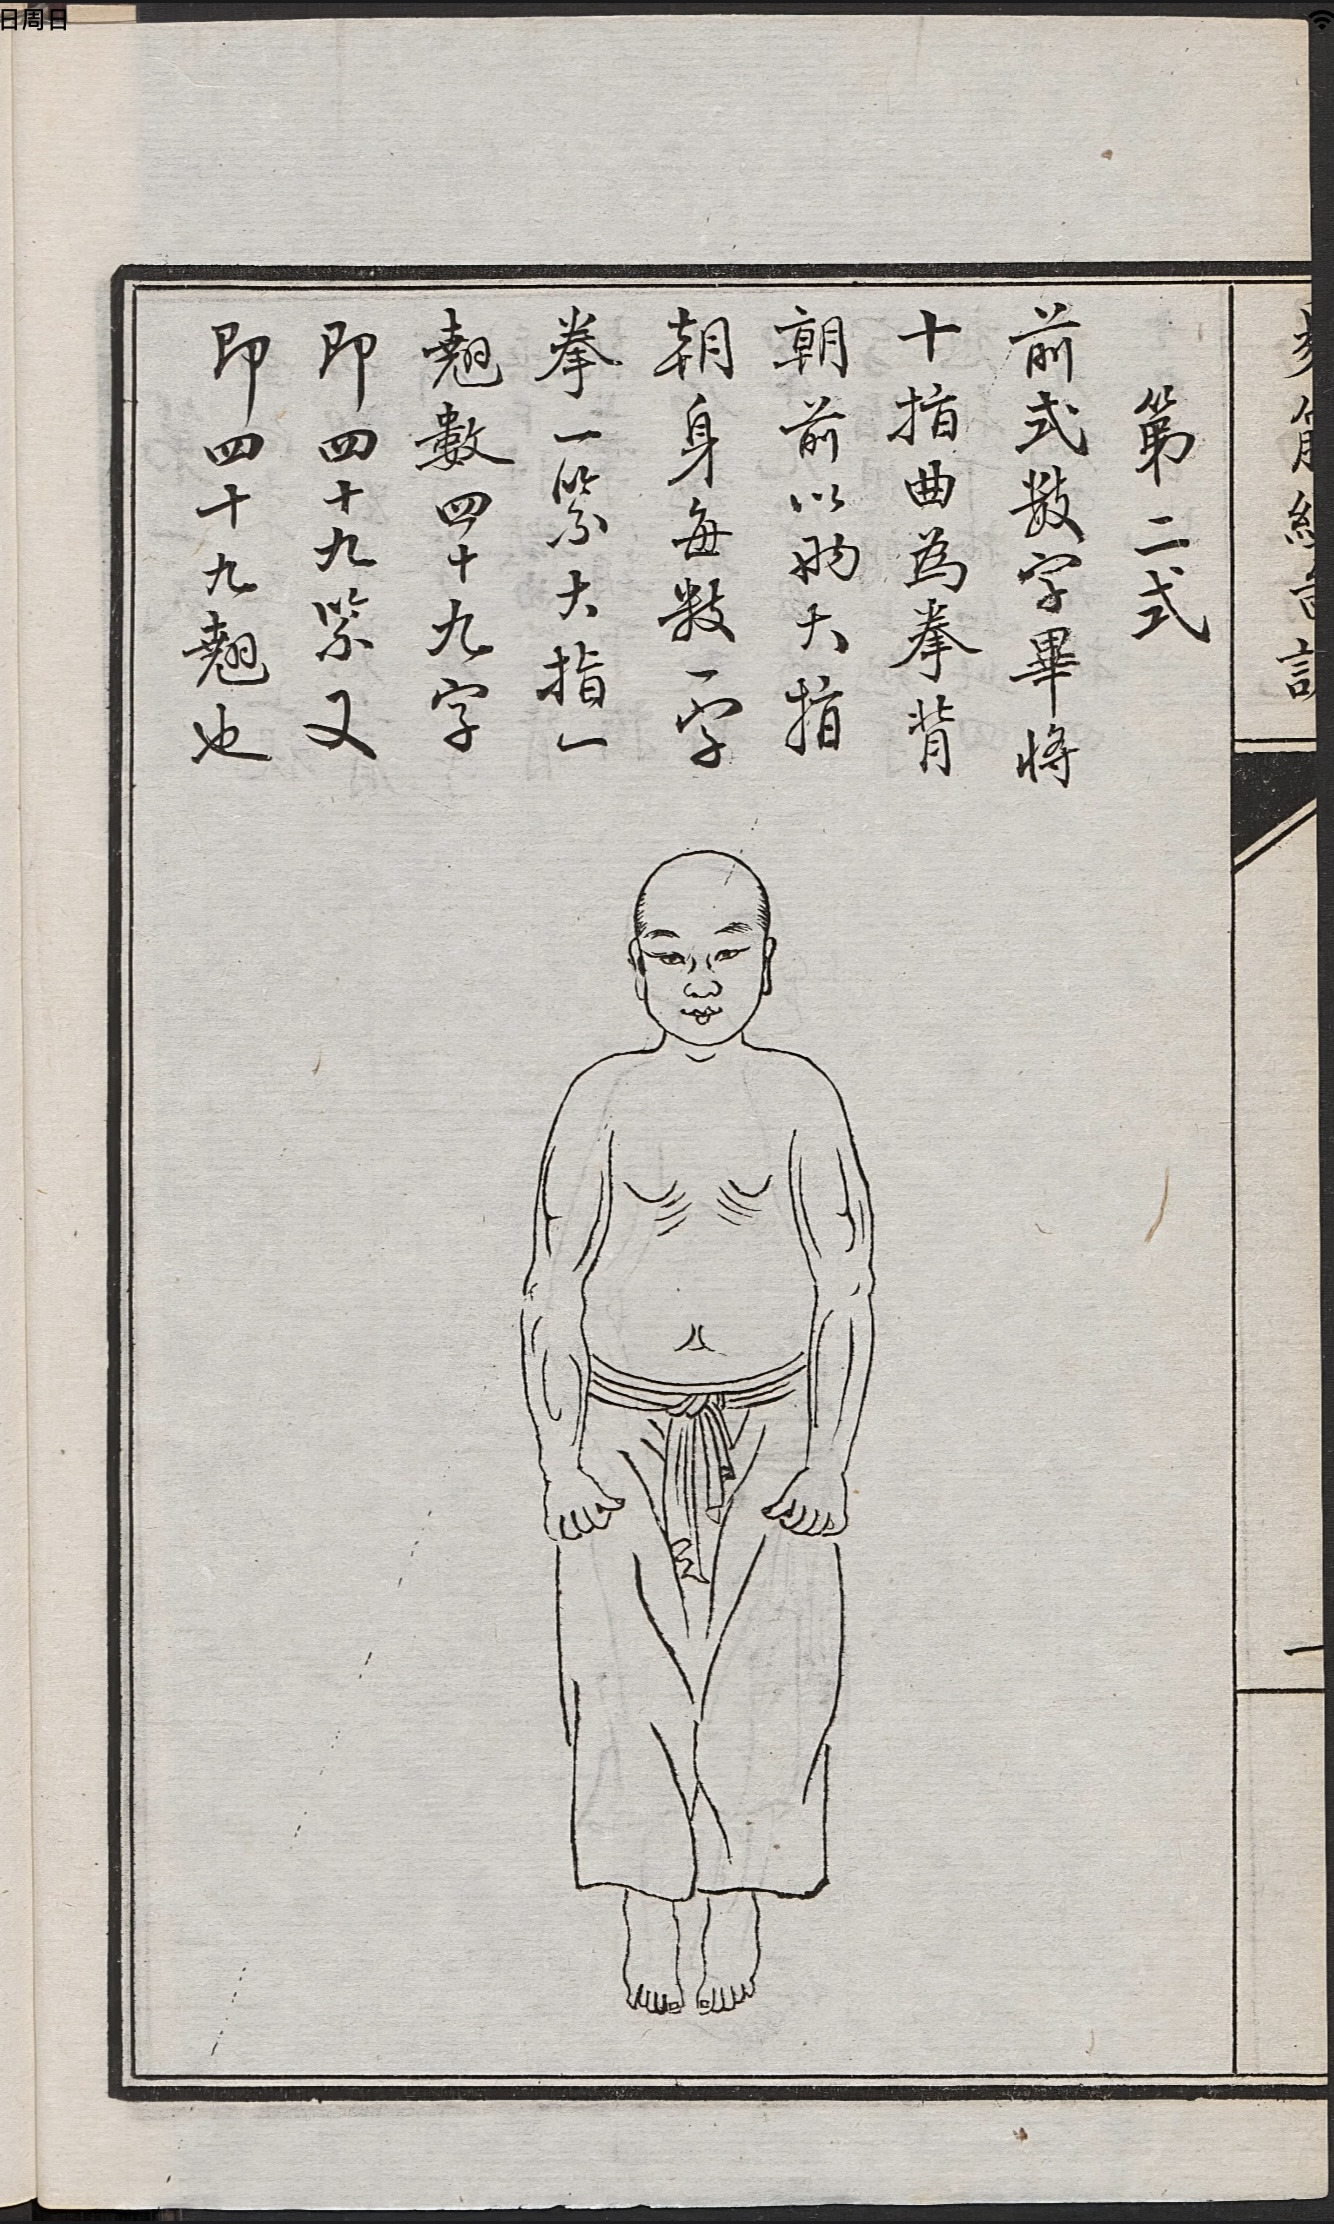 日周日
第二式
前式数字畢將
十指曲為拳背
朝前以两大指
朝身每数一字
拳一緊大指一
翹數四十九字
即四十九緊又
即四十九翹也
一